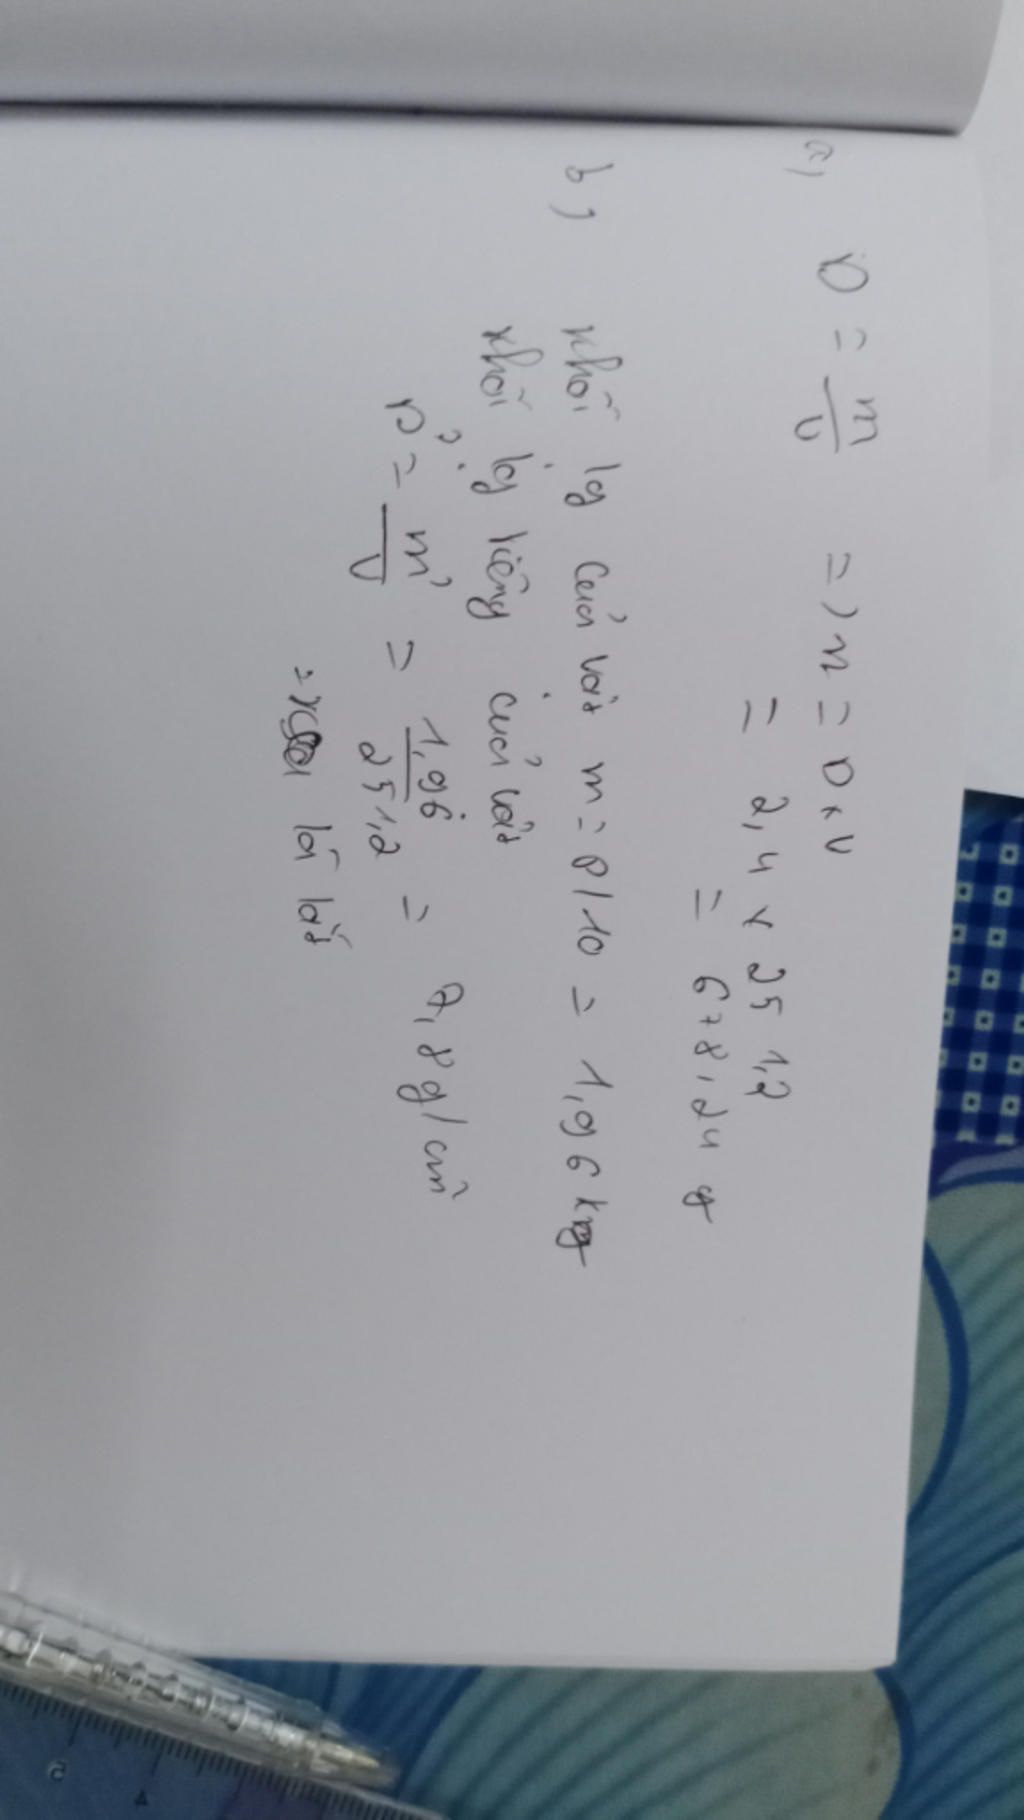 a) D = m/V => m = D x V
= 2,4 x 251,2
= 678,24 g
b) khối lg của vật m = P/10 = 1,96 kg
khối lg riêng của vật
D' = m'/V = 1,96/251,2 = 7,8 g/cm³
là sắt
5
4